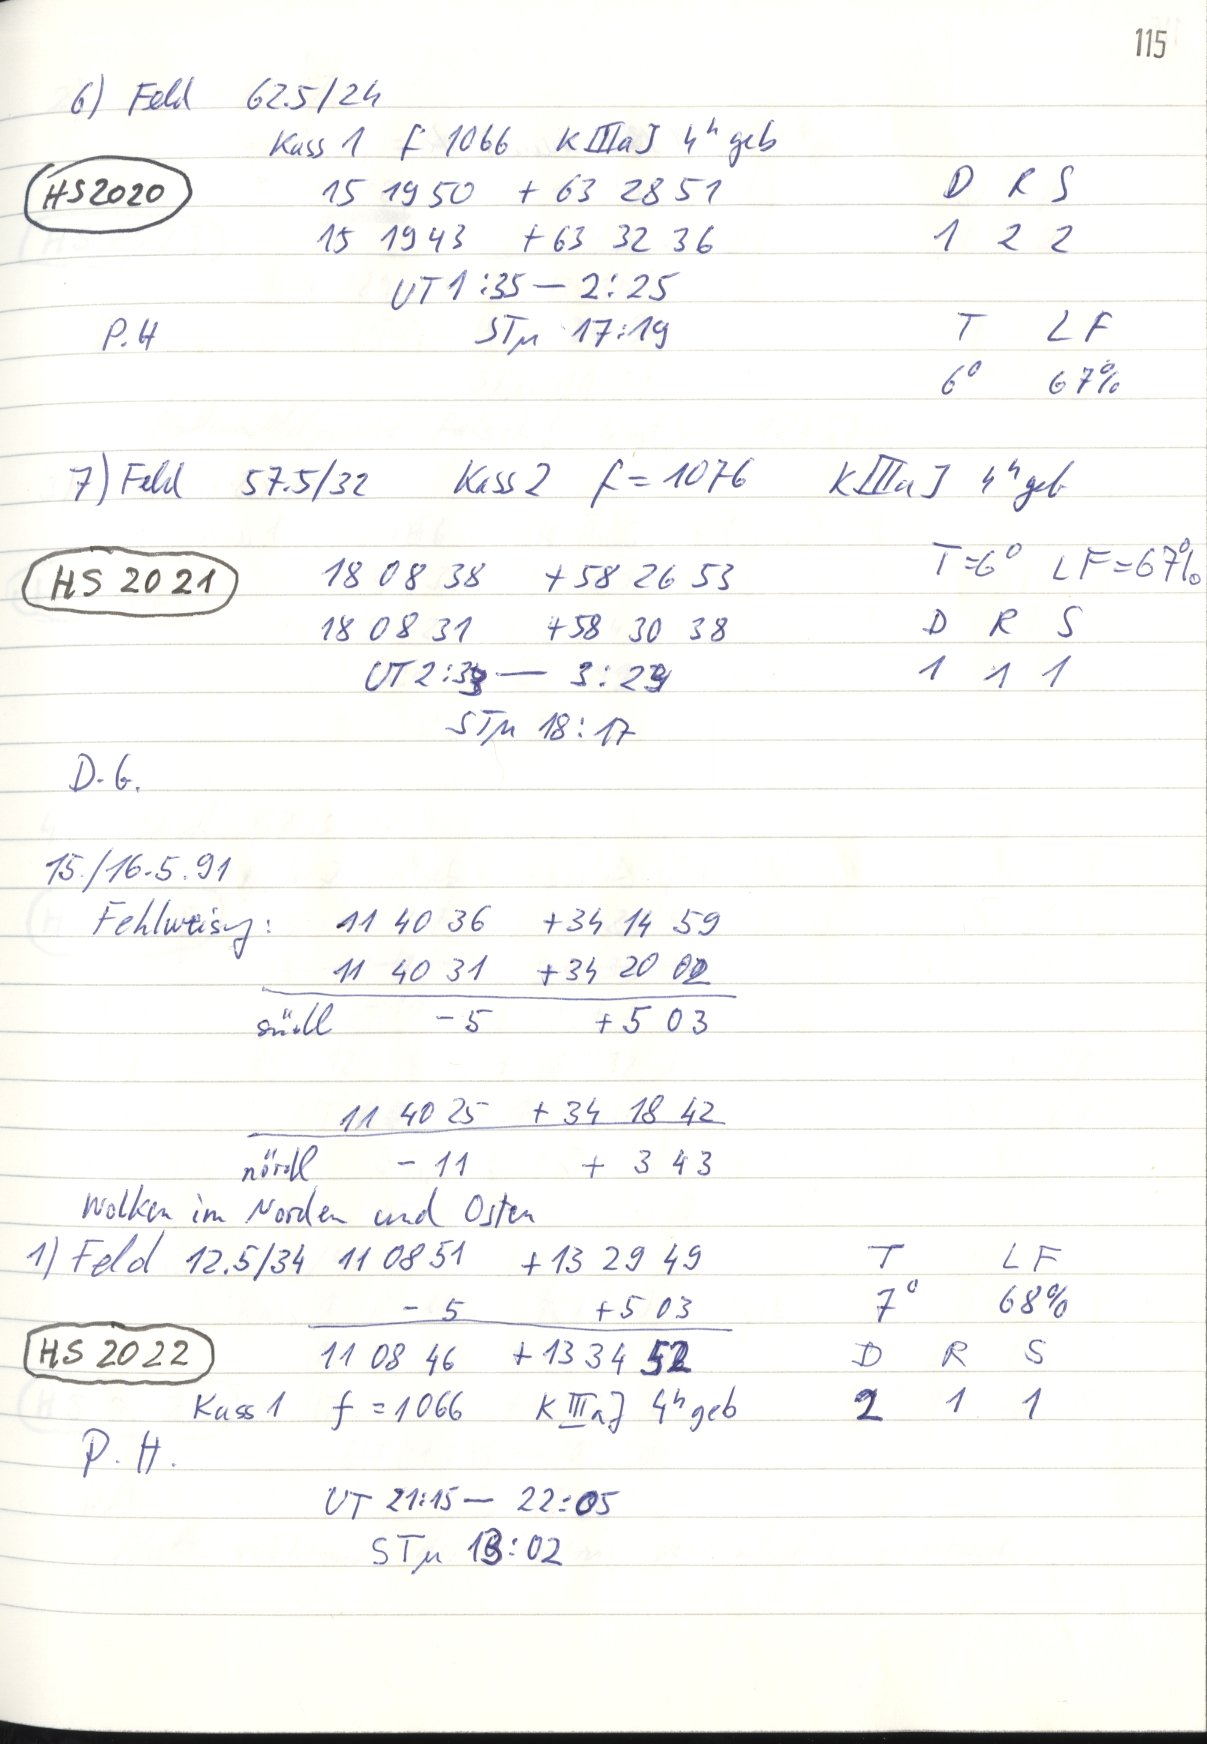 115
6) Feld 62.5/24
Kass 1 f 1066 KIIIaJ 4h geb
HS2020 15 19 50 + 63 28 51 D R S
15 19 43 +63 32 36 1 2 2
UT 1:35 — 2:25
P.H STμ 17:19 T LF
6° 67%
7) Feld 57.5/32 Kass 2 f = 1076 KIIIaJ 4h geb
HS 2021 18 08 38 +58 26 53 T=6° LF=67%
18 08 31 +58 30 38 D R S
UT 2:33 — 3:23 1 1 1
STμ 18:17
D.G.
15./16.5.91
Fehlweisung: 11 40 36 +34 14 59
11 40 31 +34 20 02
südl -5 +5 03
11 40 25 +34 18 42
nördl -11 + 3 43
Wolken im Norden und Osten
1) Feld 12.5/34 11 08 51 +13 29 49 T LF
-5 +5 03 7° 68%
HS 2022 11 08 46 +13 34 52 D R S
Kass 1 f = 1066 KIIIaJ 4h geb 2 1 1
P.H.
UT 21:15 — 22:05
STμ 13:02